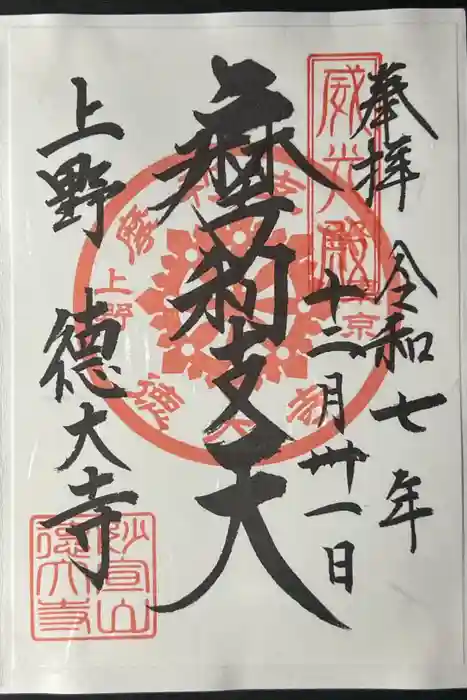 奉拝
令和七年
十二月卅一日
威光殿
摩利支天
上野
東京
徳大寺
上野
徳大寺
妙宣山
徳大寺